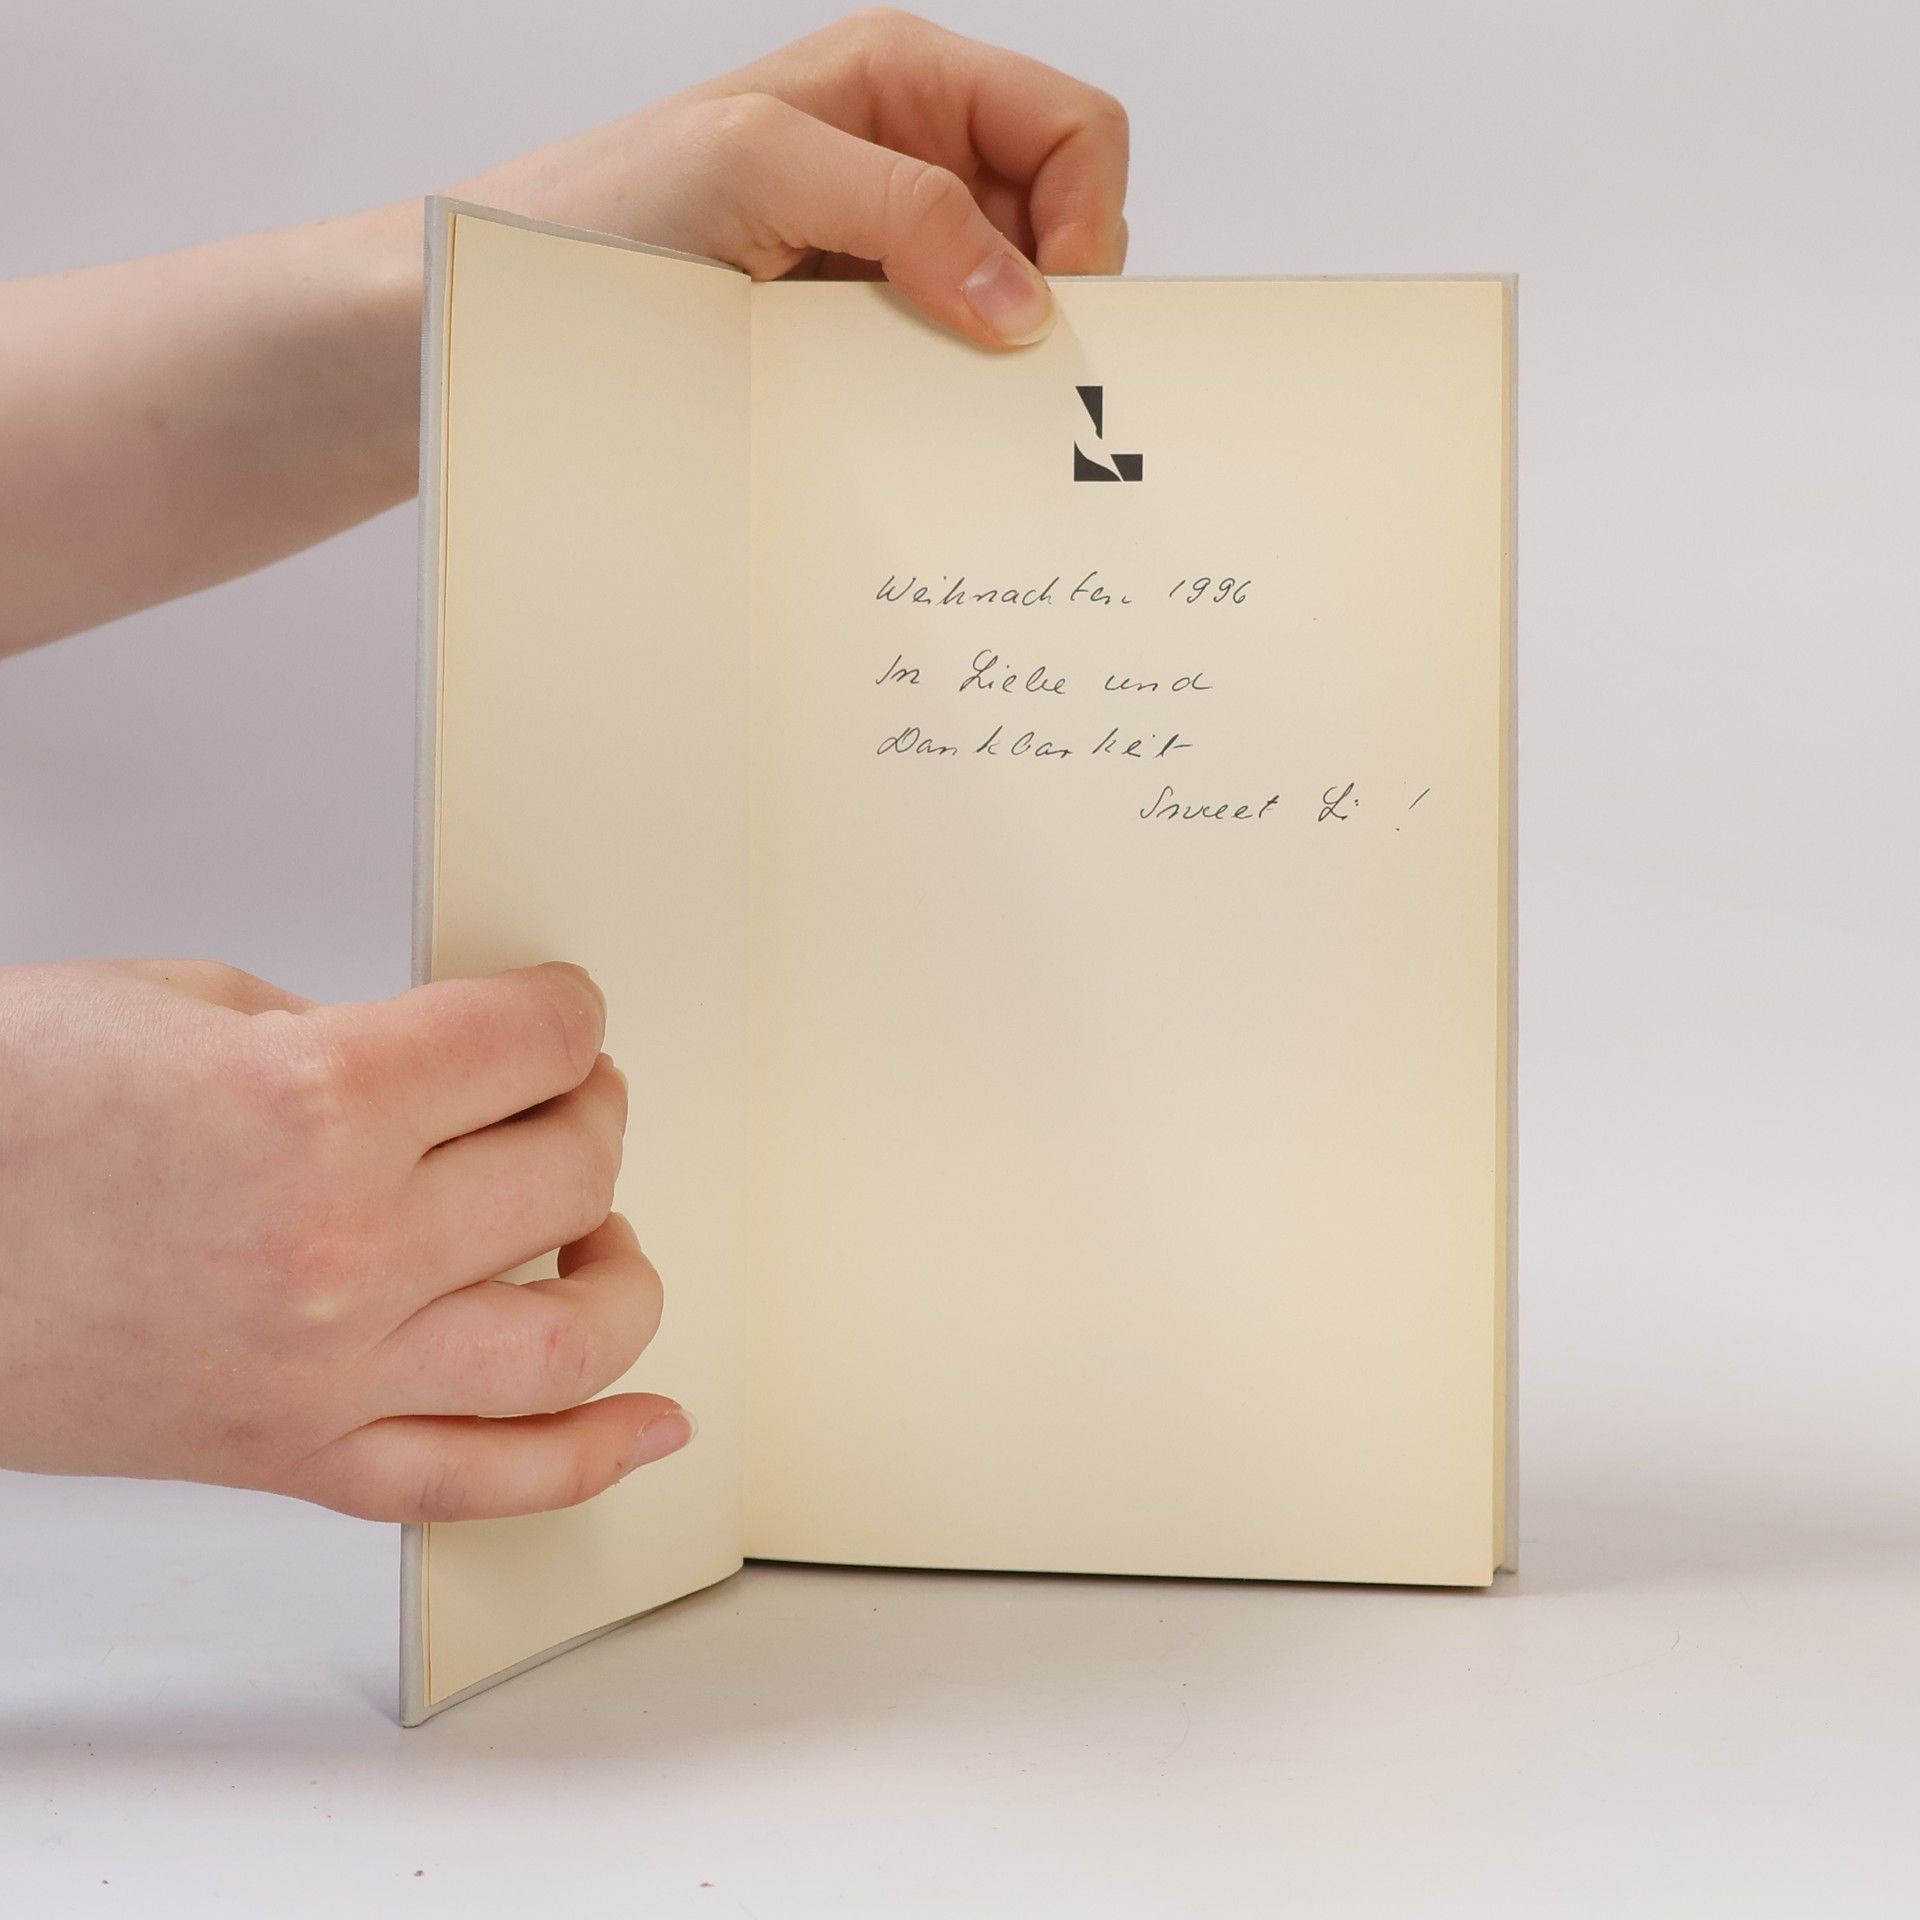 Weihnachten 1996
In Liebe und
Dankbarkeit
Sweet Li !